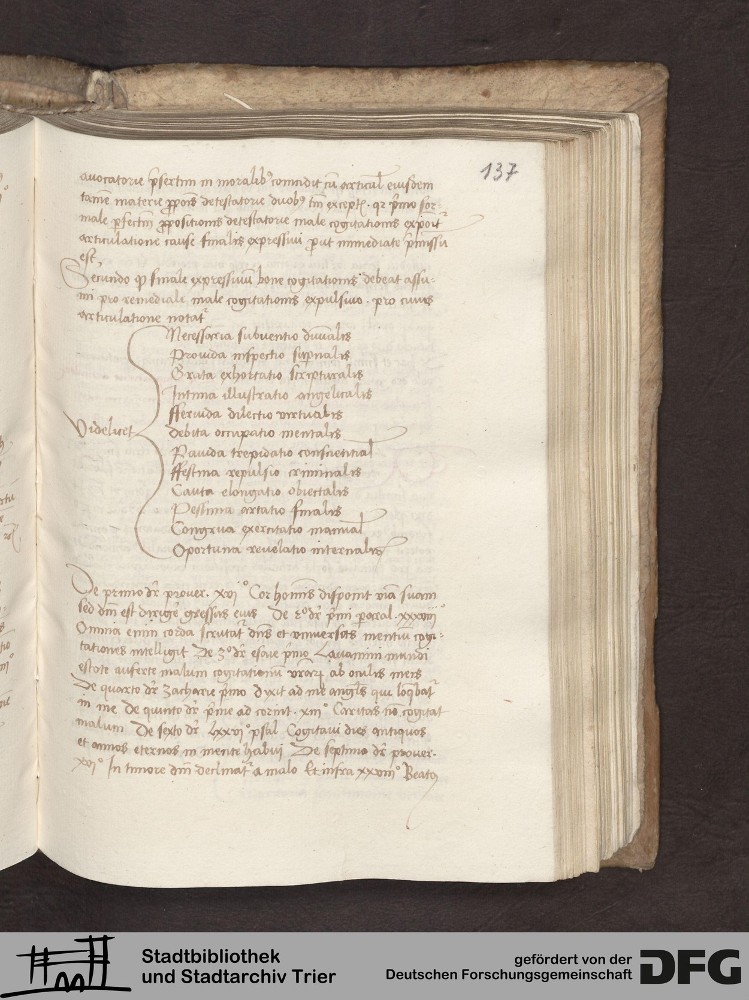 137
avocatorie p̄sertim in moralibꝫ coincidit cū articul' eiusdem
tamē materie ꝓposis detestatorie duobꝫ tm̄ exceptꝭ. qꝛ primo for
male p̄fectm̄ ꝓpositionis detestatorie male cogitationis
articulatione cause finalis expressiui put immediate p̄missū
est,
Secundo ꝙ finale expressiuū bone cogitationis debeat assu-
mi pro remediali male cogitationis expulsiuo. pro cuius
articulatione notat᷑
Videlicet
Necessaria subuentio diuinalis
Prouida inspectio sup̄nalis
Grata exhortatio scripturalis
Intima illustratio angelicalis
fferuida dilectio virtualis
Debita occupatio mentalis
Pauida trepidatio consciential'
ffestina repulsio criminalis
Cauta elongatio obiectalis
Pessima artatio finalis
Congrua exercitatio manual'
Oportuna reuelatio internalis
De primo dr̄ prouer. xvj° Cor hominis disponit viā suam
sed dn̄i est dirige gressus eius De 2° dr̄ primi paral. xxviij°
Omnia enim corda scrutat᷑ dn̄s et vniuersas mentiū cogi-
tationes intelligit De 3° dr̄ esaie primo Lauamini mundi
estote auferte malum cogitationū vr̄aꝝ ab oculis meis
De quarto dr̄ Zacharie primo Dixit ad me angl̄s qui loqbat᷑
in me De quinto dr̄ prime ad corint. xiij° Caritas nō cogitat
malum De sexto dr̄ lxxvj° psal' Cogitaui dies antiquos
et annos eternos in mente habui De septimo dr̄ prouer.
xvj° In timore dn̄i declinat᷑ a malo Et infra xxviij° Beatꝰ
Stadtbibliothek
und Stadtarchiv Trier
gefördert von der
Deutschen Forschungsgemeinschaft
DFG